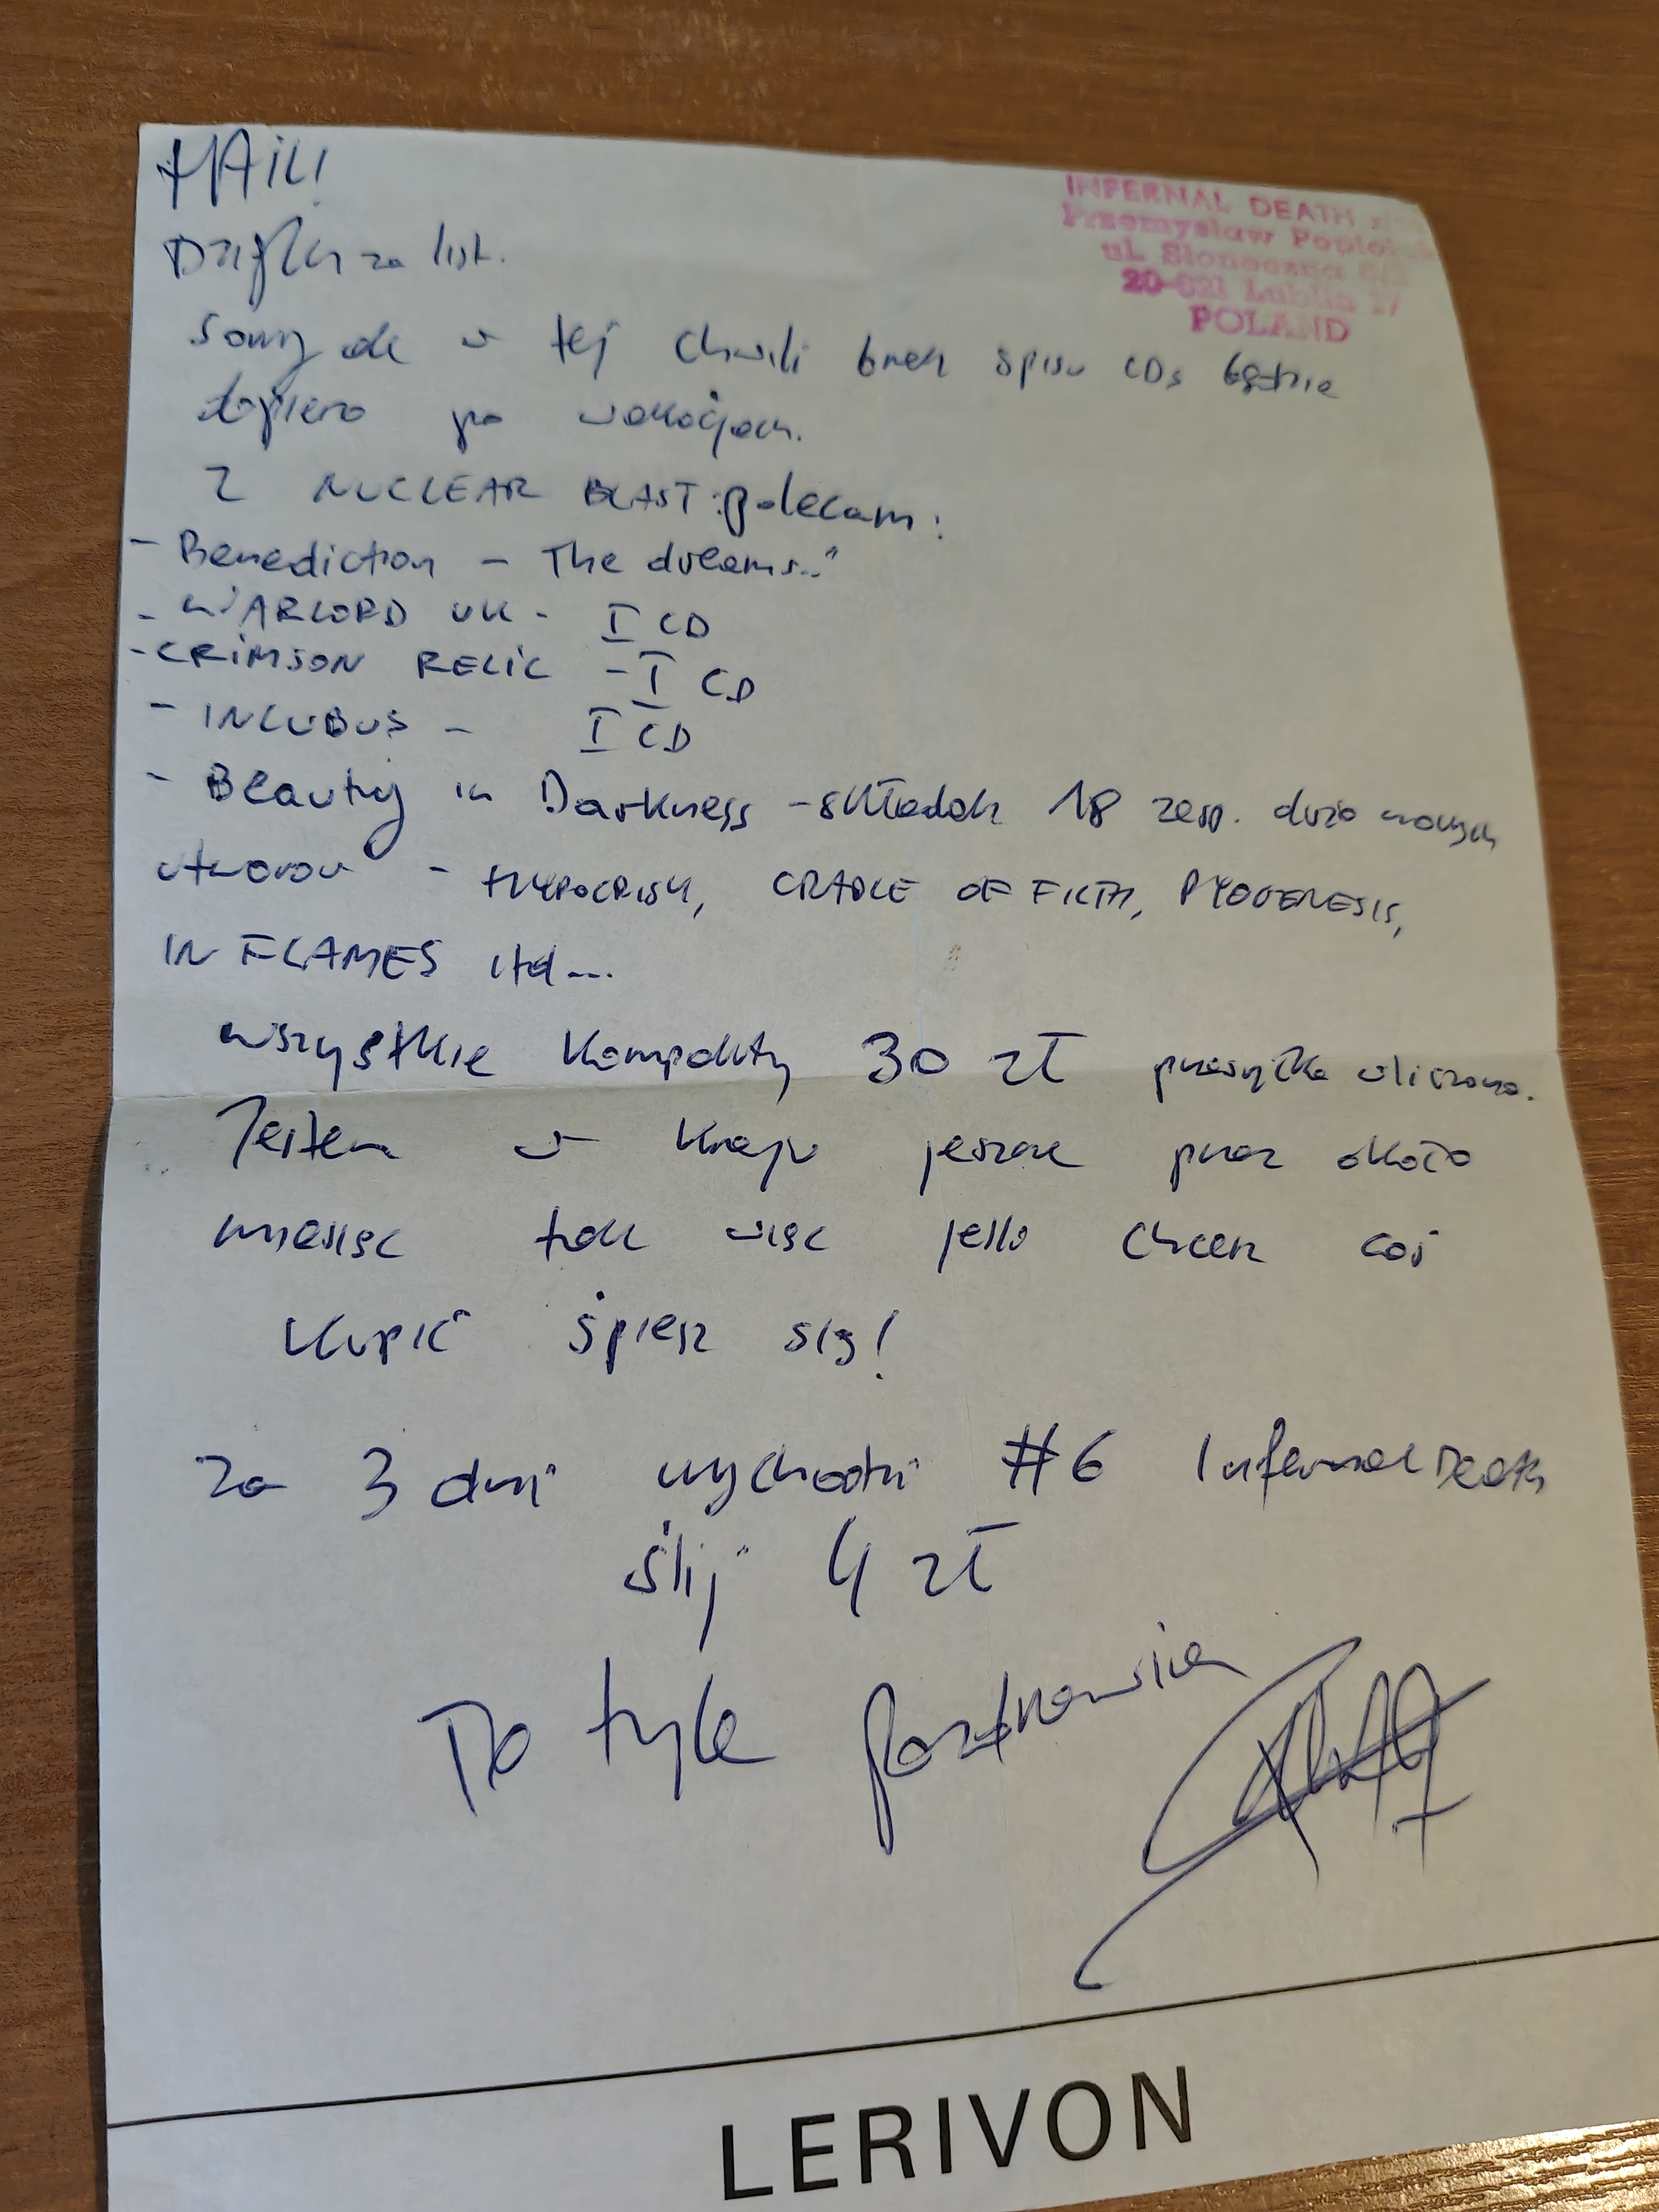 HAiL!
INFERNAL DEATH
Przemysław
ul. Słoneczna
Lublin 17
POLAND
Dzięki za list.
Sorry ale w tej chwili brak spisu CDs będzie
dopiero po wakacjach.
Z NUCLEAR BLAST: polecam:
- Benediction - The dreams.."
- WARLORD UK - I CD
- CRiMSON RELiC - I CD
- INCUBUS - I CD
- Beauty in Darkness - składak 18 zesp. dużo nowych
utworów - HYPOCRISY, CRADLE OF FILTH, PYOGENESIS,
IN FLAMES itd...
wszystkie kompakty 30 zł przesyłka wliczona.
Jestem w kraju jeszcze przez około
miesiąc tak więc jeśli chcesz coś
kupić śpiesz się!
za 3 dni wychodzi #6 Infernal Death
ślij 4 zł
To tyle pozdrowienia
LERIVON